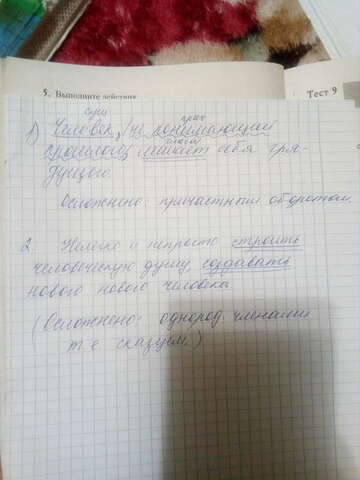 5. Выполните действия
Тест 9
сущ прич
1) Человек, не понимающий
глагол
прошлого, лишает себя гря-
дущего.
Осложнено: причастным оборотом.
2 Нелегко и непросто строить
человеческую душу, создавать
нового нового человека
(Осложнено: однород членами
т е сказуем.)